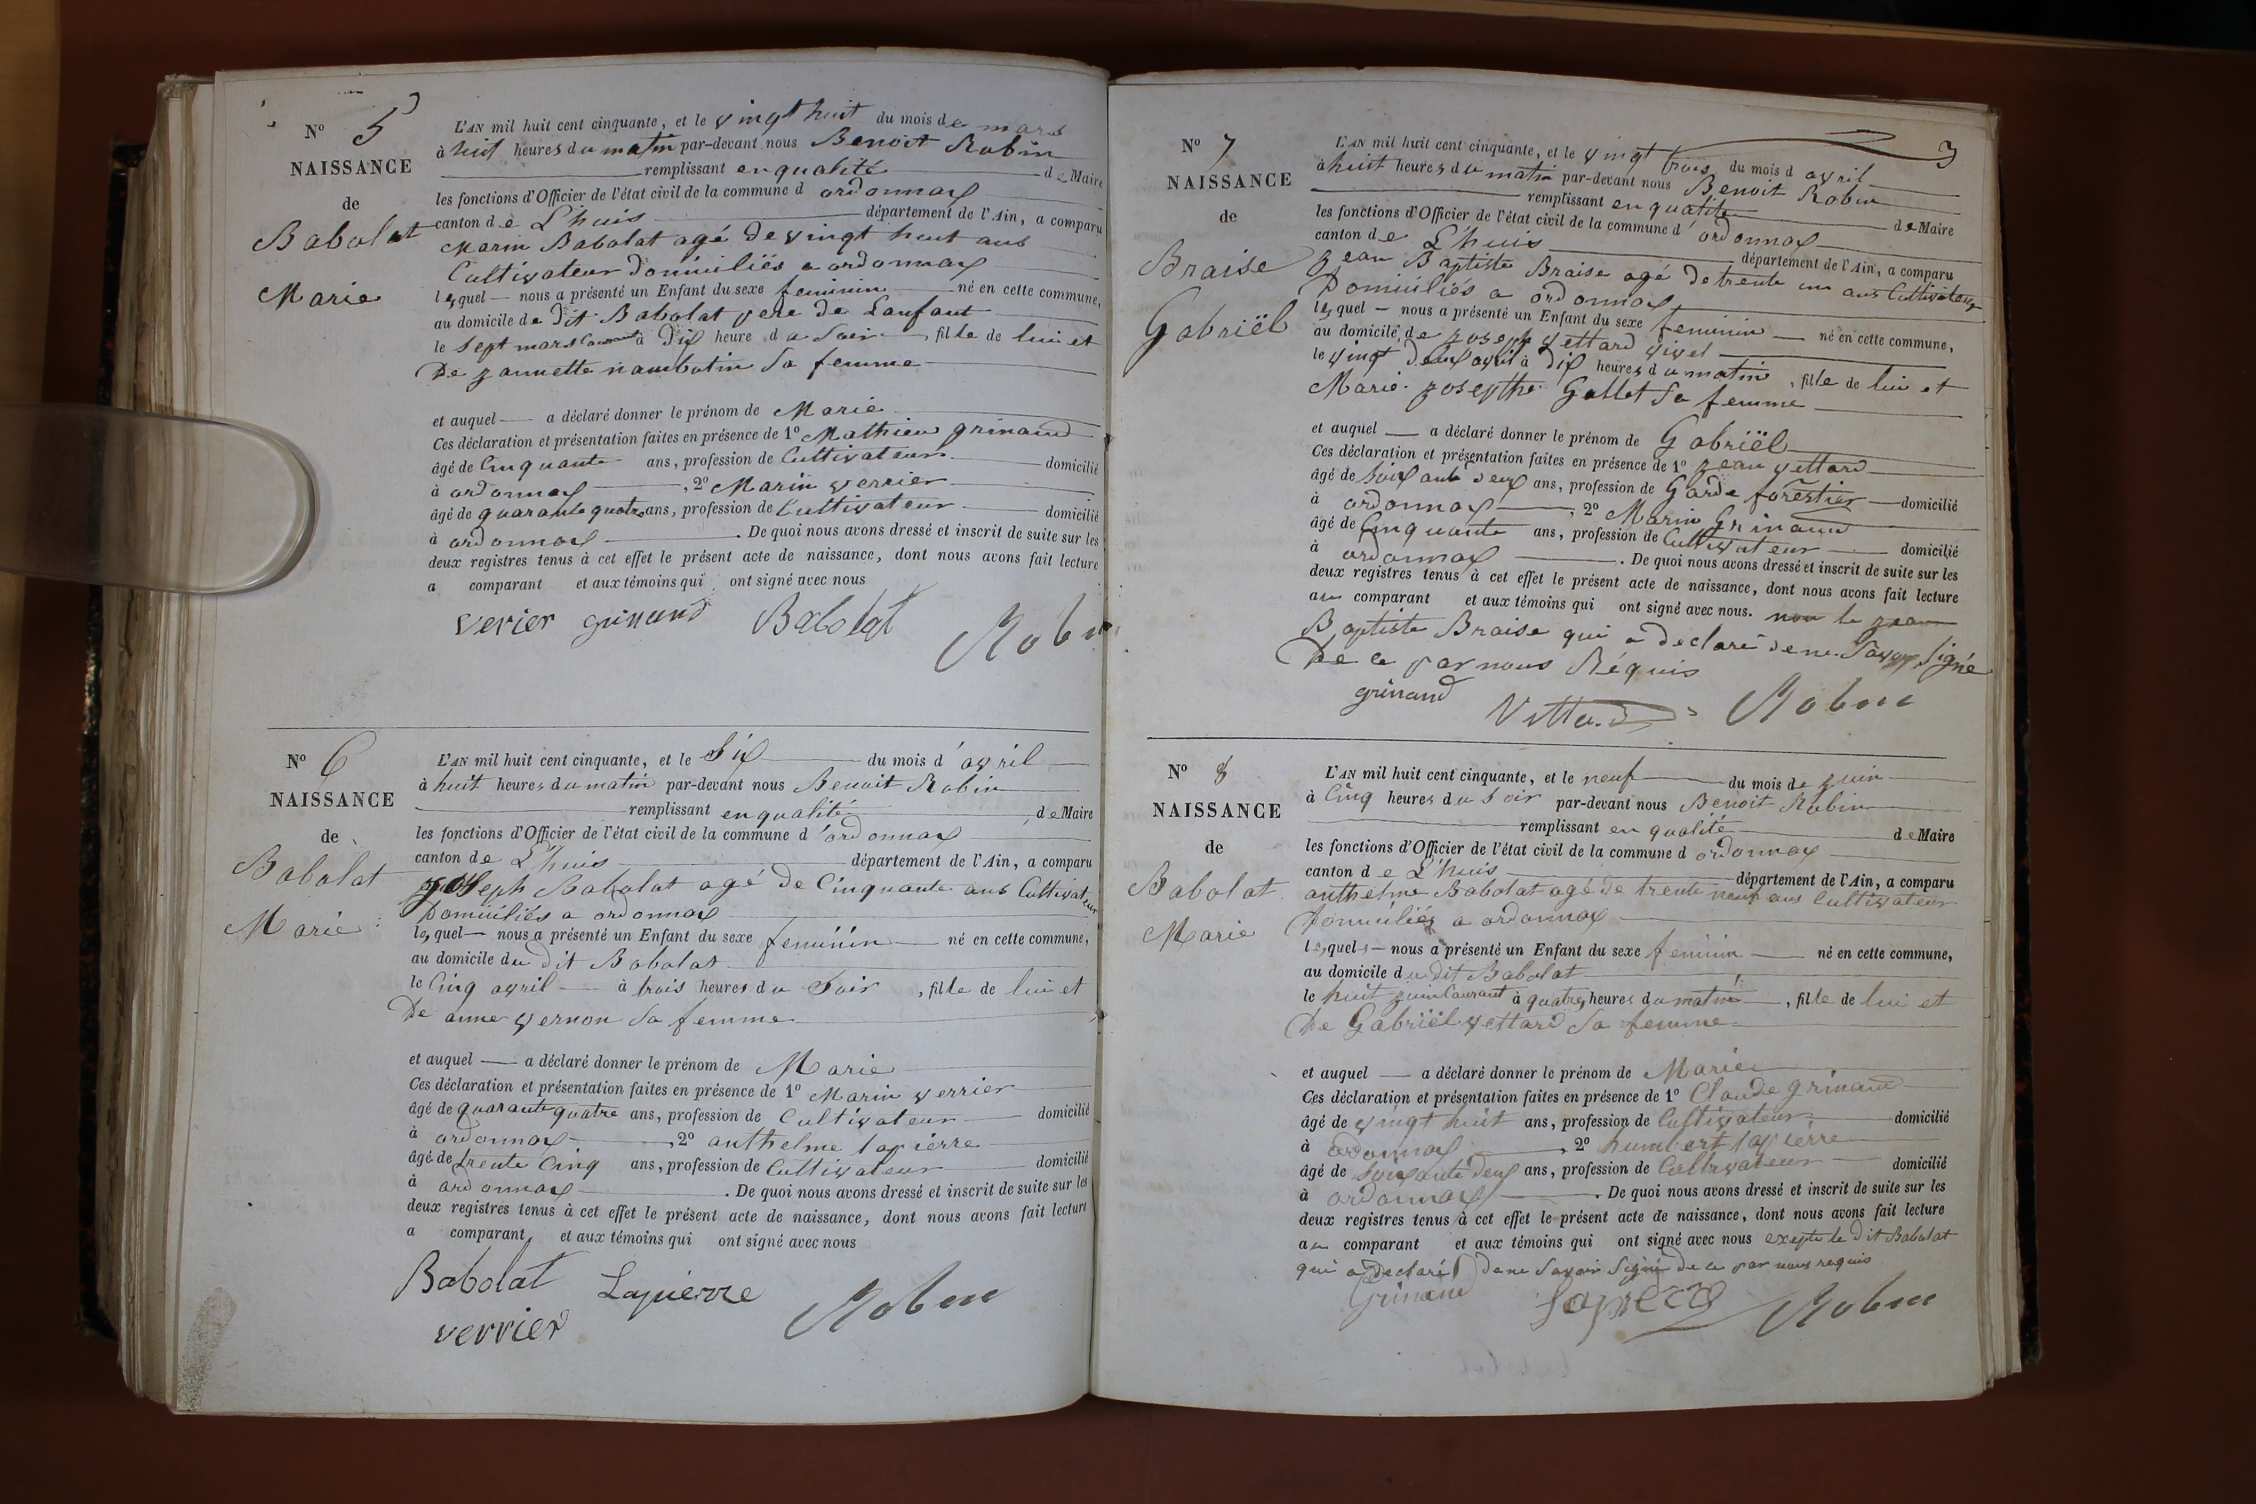 No 5
NAISSANCE
de
Babolat
Marie
L'AN mil huit cent cinquante, et le vingt huit du mois de mars
à huit heures du matin par-devant nous Benoit Robin
remplissant en qualité de Maire
les fonctions d'Officier de l'état civil de la commune d ordonnax
canton de L'huis département de l'Ain, a comparu
Marin Babolat agé de vingt huit ans
Cultivateur domiciliés a ordonnax
lequel nous a présenté un Enfant du sexe feminin né en cette commune,
au domicile de dit Babolat pere de Lanfant
le sept mars Courant à dix heure du Soir, fille de lui et
De jannette nambotin Sa femme
et auquel a déclaré donner le prénom de Marie
Ces déclaration et présentation faites en présence de 1o Mathieu grinand
âgé de Cinquante ans, profession de Cultivateur domicilié
à ordonnax, 2o Marin verrier
âgé de quarante quatre ans, profession de Cultivateur domicilié
à ordonnax. De quoi nous avons dressé et inscrit de suite sur les
deux registres tenus à cet effet le présent acte de naissance, dont nous avons fait lecture
a comparant et aux témoins qui ont signé avec nous
verier grinand Babolat Robin
No 6
NAISSANCE
de
Babolat
Marie
L'AN mil huit cent cinquante, et le Six du mois d'avril
à huit heures du matin par-devant nous Benoit Robin
remplissant en qualité de Maire
les fonctions d'Officier de l'état civil de la commune d'ordonnax
canton de L'huis département de l'Ain, a comparu
joseph Babolat agé de Cinquante ans Cultivateur
Domiciliés a ordonnax
lequel nous a présenté un Enfant du sexe feminin né en cette commune,
au domicile du dit Babolat
le Cinq avril à trois heures du Soir, fille de lui et
De anne vernon Sa femme
et auquel a déclaré donner le prénom de Marie
Ces déclaration et présentation faites en présence de 1o Marin verrier
âgé de quarante quatre ans, profession de Cultivateur domicilié
à ordonnax, 2o anthelme lapierre
âgé de trente Cinq ans, profession de Cultivateur domicilié
à ordonnax. De quoi nous avons dressé et inscrit de suite sur les
deux registres tenus à cet effet le présent acte de naissance, dont nous avons fait lecture
a comparant, et aux témoins qui ont signé avec nous
Babolat Lapierre Robin
verrier
3
No 7
NAISSANCE
de
Braise
Gabriël
L'AN mil huit cent cinquante, et le vingt trois du mois d avril
à huit heures du matin par-devant nous Benoit Robin
remplissant en qualité de Maire
les fonctions d'Officier de l'état civil de la commune d'ordonnax
canton de L'huis département de l'Ain, a comparu
jean Baptiste Braise agé de trente un ans Cultivateur
Domiciliés a ordonnax
lequel nous a présenté un Enfant du sexe feminin né en cette commune,
au domicile de joseph vettard
le vingt deux avril à dix heures du matin, fille de lui et
Marie josephte Gallet Sa femme
et auquel a déclaré donner le prénom de Gabriël
Ces déclaration et présentation faites en présence de 1o jean vettard
âgé de Soixante deux ans, profession de Garde forestier domicilié
à ordonnax, 2o Marin Grinand
âgé de Cinquante ans, profession de Cultivateur domicilié
à ordonnax. De quoi nous avons dressé et inscrit de suite sur les
deux registres tenus à cet effet le présent acte de naissance, dont nous avons fait lecture
au comparant et aux témoins qui ont signé avec nous. non le jean
Baptiste Braise qui a declaré de ne Savoir Signé
De ce par nous Réquis
grinand Vettard Robin
No 8
NAISSANCE
de
Babolat
Marie
L'AN mil huit cent cinquante, et le neuf du mois de juin
à Cinq heures du Soir par-devant nous Benoit Robin
remplissant en qualité de Maire
les fonctions d'Officier de l'état civil de la commune d ordonnax
canton de L'huis département de l'Ain, a comparu
anthelme Babolat agé de trente neuf ans Cultivateur
Domiciliés a ordonnax
lequel nous a présenté un Enfant du sexe feminin né en cette commune,
au domicile du dit Babolat
le huit juin Courant à quatre heures du matin, fille de lui et
De Gabriël vettard Sa femme
et auquel a déclaré donner le prénom de Marie
Ces déclaration et présentation faites en présence de 1o Claude grinand
âgé de vingt huit ans, profession de Cultivateur domicilié
à ordonnax, 2o humbert lapierre
âgé de Soixante deux ans, profession de Cultivateur domicilié
à ordonnax. De quoi nous avons dressé et inscrit de suite sur les
deux registres tenus à cet effet le présent acte de naissance, dont nous avons fait lecture
au comparant et aux témoins qui ont signé avec nous exepte le dit Babolat
qui a declaré de ne Savoir Signé de ce par nous requis
Grinand Robin